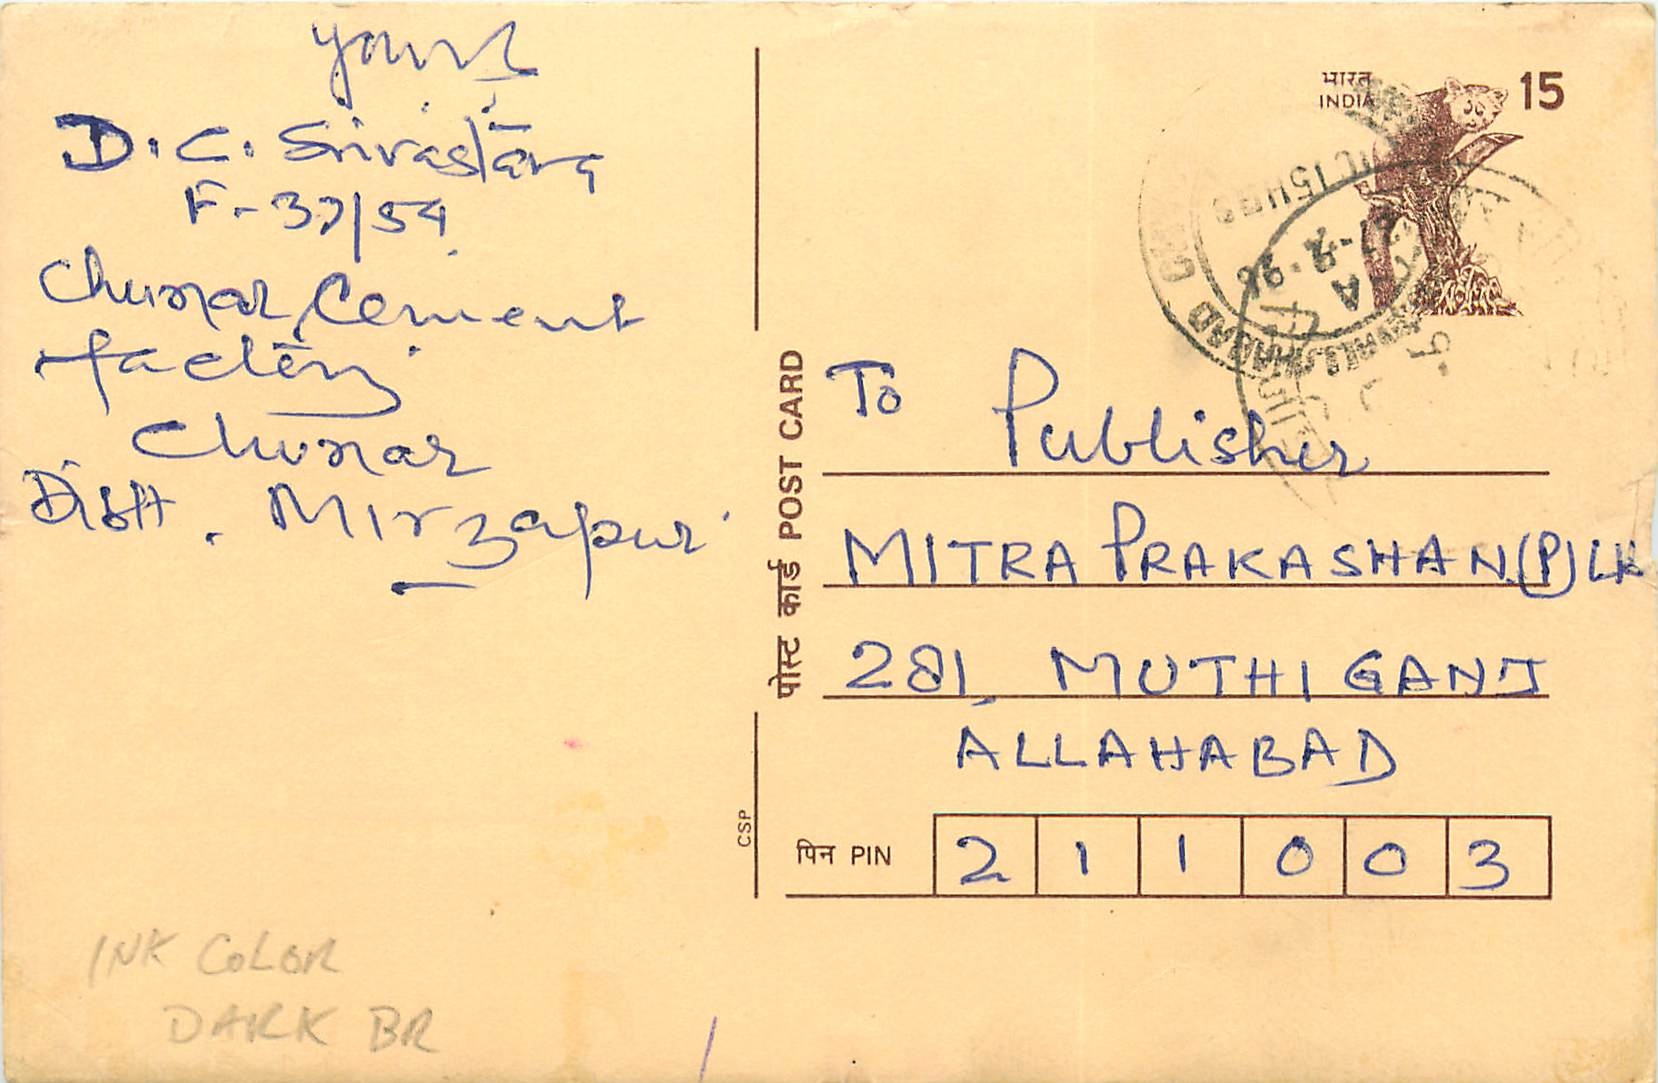 yours
D. C. Srivastava
F-37/54
Chunar Cement
factory
Chunar
Distt. Mirzapur
भारत
INDIA
15
पोस्ट कार्ड POST CARD
To
Publisher
MITRA PRAKASHAN (P) Ltd
281, MUTHIGANJ
ALLAHABAD
CSP
पिन PIN
2 1 1 0 0 3
INK COLOR
DARK BR